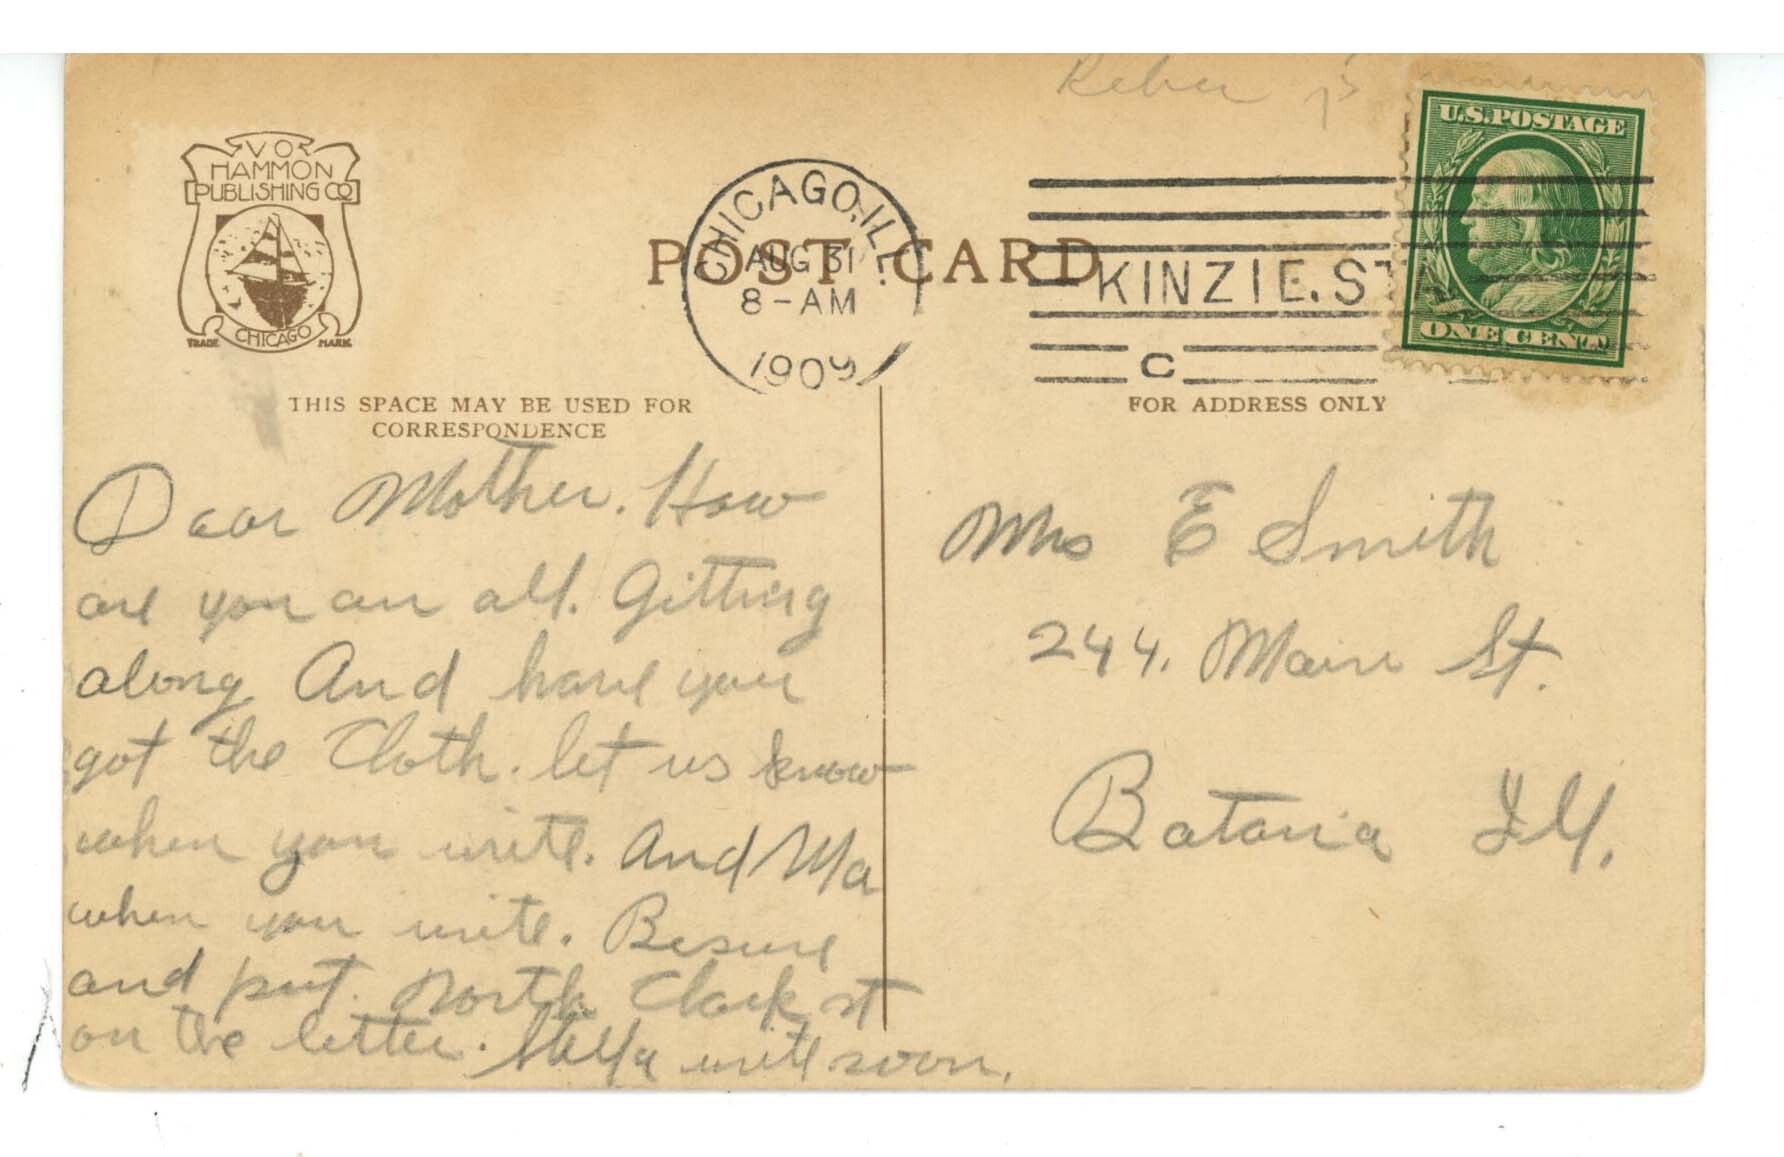 Reber
V O
HAMMON
PUBLISHING CO
CHICAGO
TRADE MARK
CHICAGO, ILL.
AUG 31
8-AM
1909
POST CARD
KINZIE. STA
C
U.S. POSTAGE
ONE CENT
THIS SPACE MAY BE USED FOR
CORRESPONDENCE
FOR ADDRESS ONLY
Dear Mother. How
are you an all. Gitting
along And have you
got the Cloth. let us know
when you write. And Ma
when you write. Besure
and put. North Clark st
on the letter. Stella write soon.
Mrs E Smith
244. Main St.
Batavia Ill.